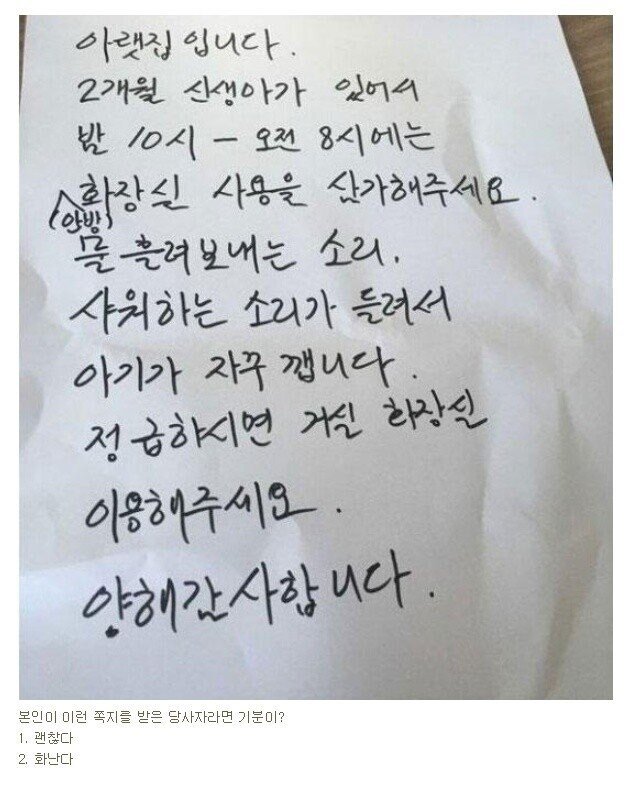 아랫집입니다.
2개월 신생아가 있어서
밤 10시 - 오전 8시에는
(안방) 화장실 사용을 삼가해주세요.
물 흘려보내는 소리.
샤워하는 소리가 들려서
아기가 자꾸 깹니다.
정 급하시면 거실 화장실
이용해주세요.
양해감사합니다.
본인이 이런 쪽지를 받은 당사자라면 기분이?
1. 괜찮다
2. 화난다